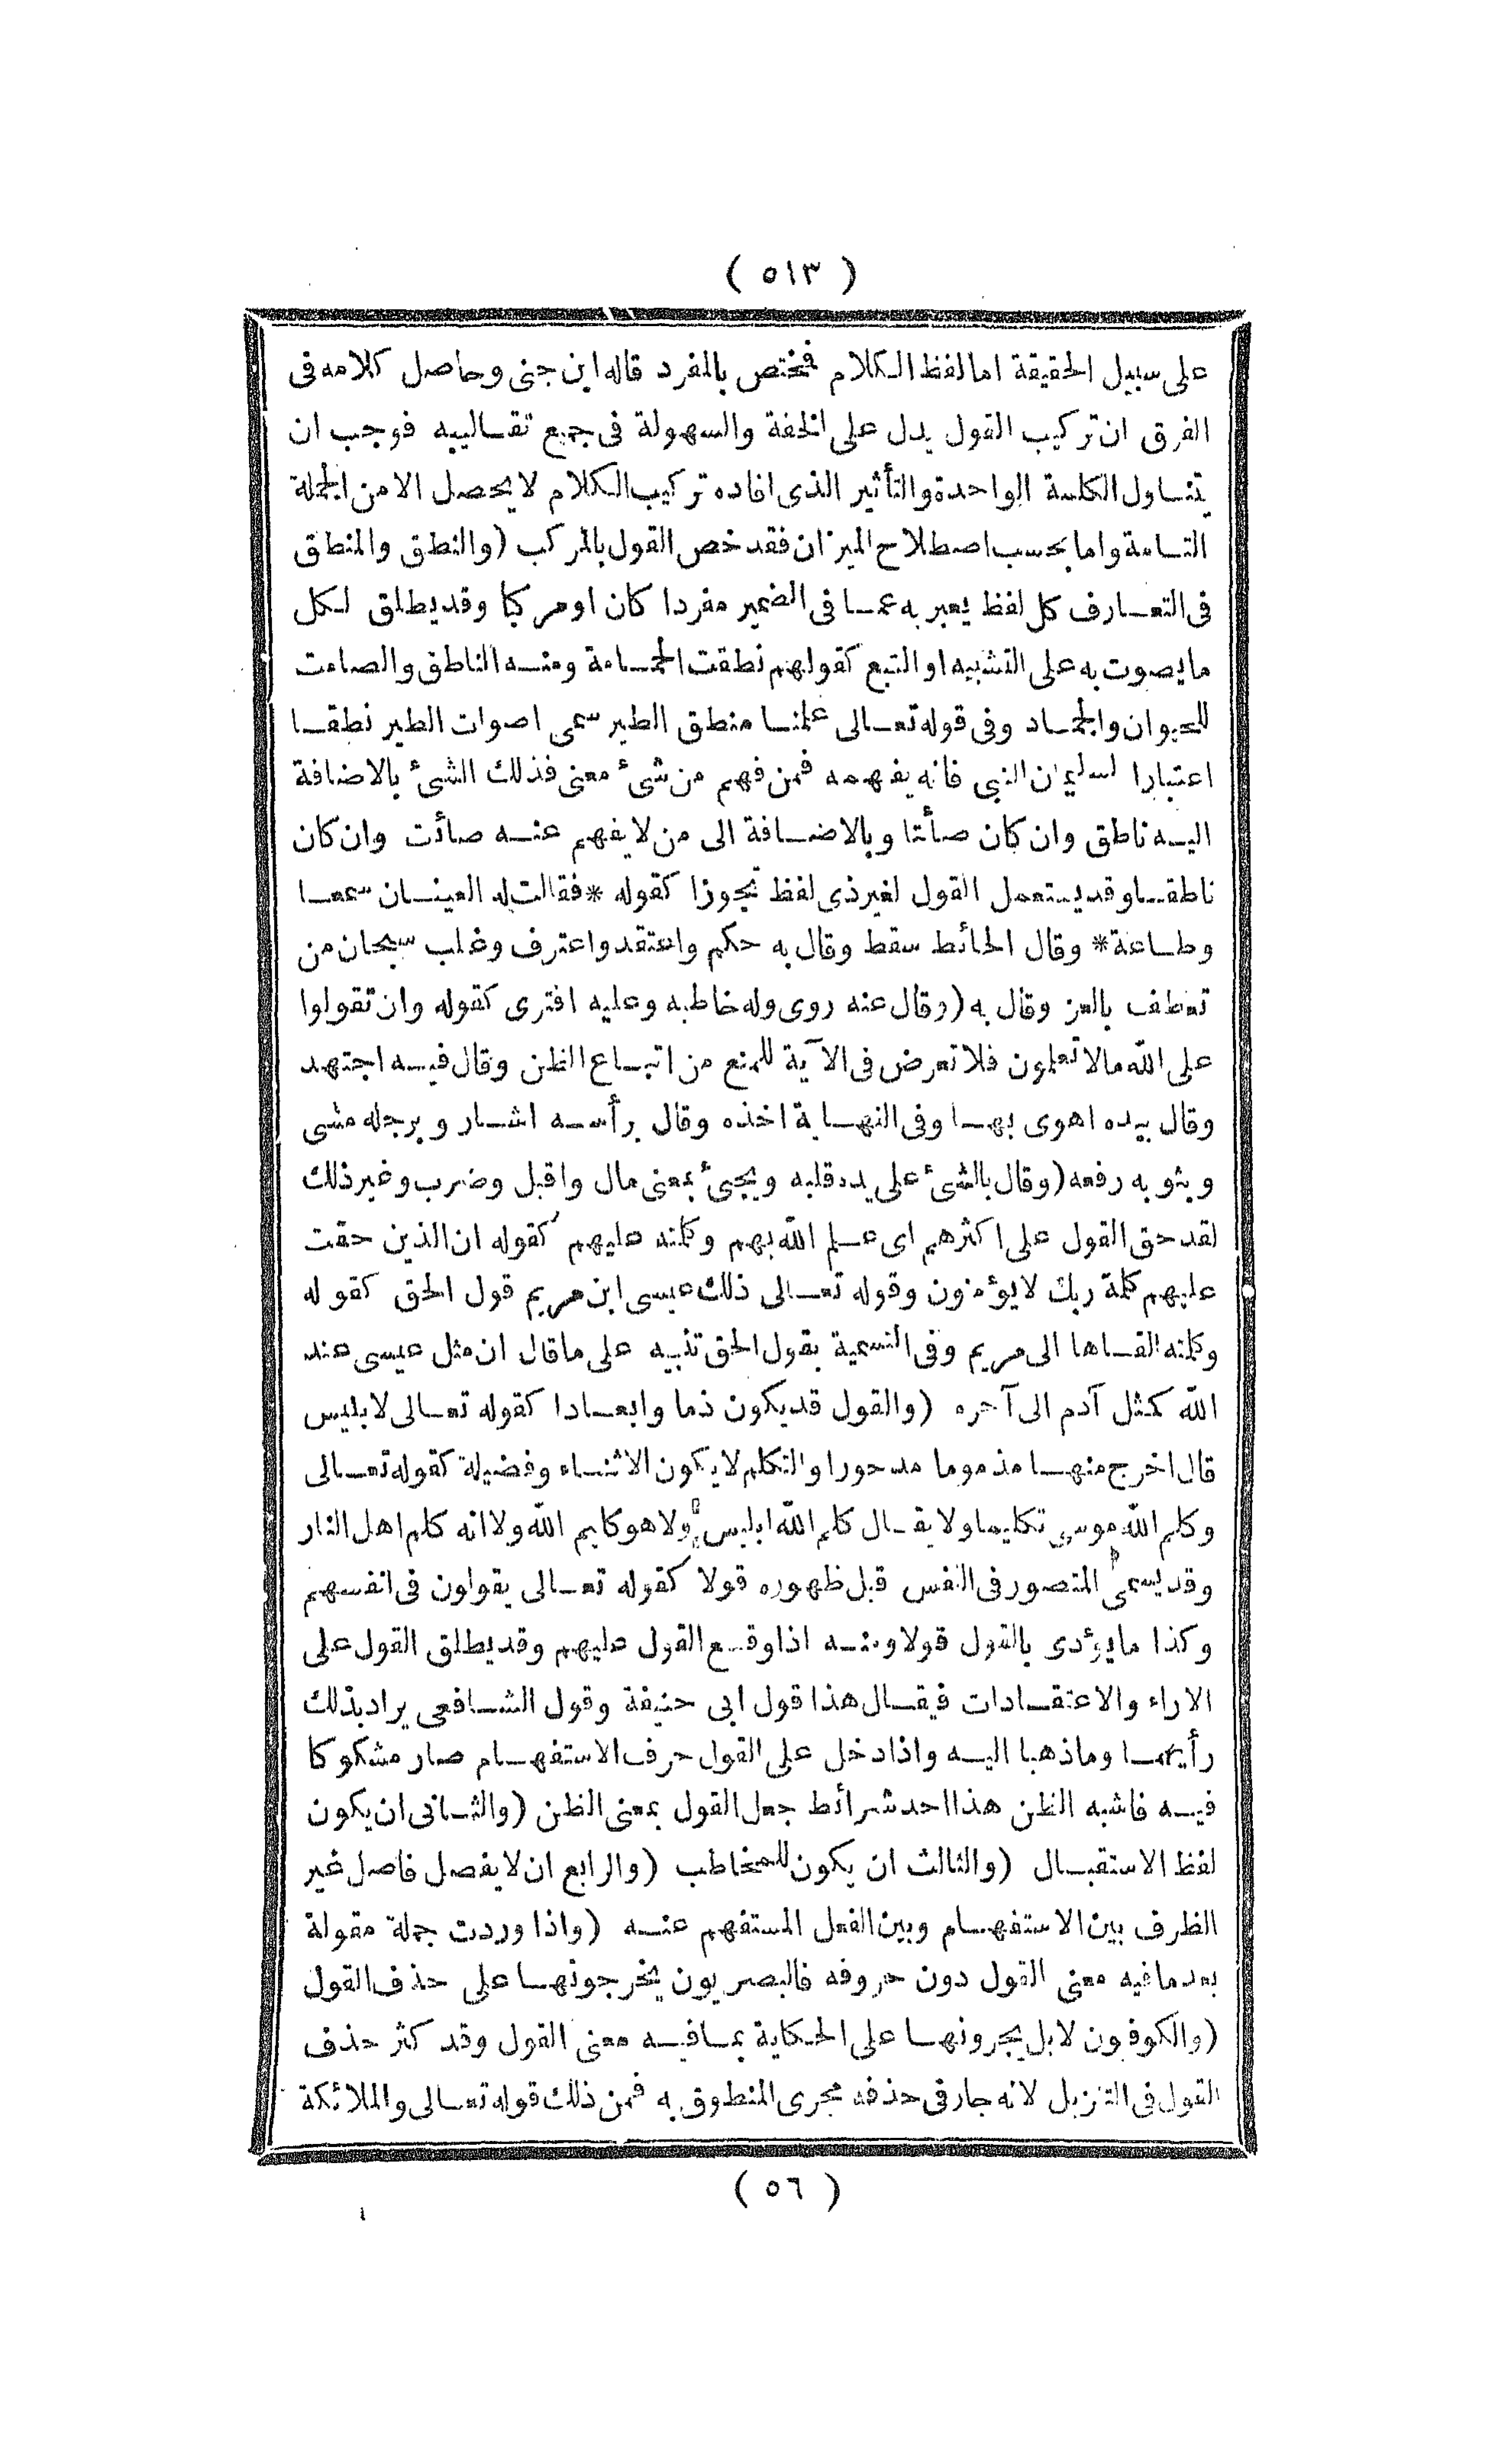 ( ٥١٣ )
على سبيل الحقيقة اما لفظ الكلام فمختص بالمفرد قاله ابن جنى وحاصل كلامه فى
الفرق ان تركيب القول يدل على الخفة والسهولة فى جميع تقاليبه فوجب ان
يتناول الكلمة الواحدة والتأثير الذى افاده تركيب الكلام لا يحصل الا من الجملة
التامة واما بحسب اصطلاح الميزان فقد خص القول بالمركب (والنطق والمنطق
فى التعارف كل لفظ يعبر به عما فى الضمير مفردا كان او مركبا وقد يطلق لكل
ما يصوت به على التشبيه او التبع كقولهم نطقت الحمامة ومنه الناطق والصامت
للحيوان والجماد وفى قوله تعالى علمنا منطق الطير سمى اصوات الطير نطقا
اعتبارا لسليمان النبى فانه يفهمه فمن فهم من شئ معنى فذلك الشئ بالاضافة
اليه ناطق وان كان صأتا وبالاضافة الى من لا يفهم عنه صائت وان كان
ناطقا وقد يستعمل القول لغير ذى لفظ تجوزا كقوله *فقالت له العينان سمعا
وطاعة* وقال الحائط سقط وقال به حكم واعتقد واعترف وغلب سبحان من
تعطف بالعز وقال به (وقال عنه روى وله خاطبه وعليه افترى كقوله وان تقولوا
على الله مالا تعلمون فلا تعرض فى الآية للمنع من اتباع الظن وقال فيه اجتهد
وقال بيده اهوى بها وفى النهاية اخذه وقال برأسه اشار وبرجله مشى
وبثوبه رفعه (وقال بالشئ على يده قلبه ويجئ بمعنى مال واقبل وضرب وغير ذلك
لقد حق القول على اكثرهم اى علم الله بهم وكلمته عليهم كقوله ان الذين حقت
عليهم كلمة ربك لا يؤمنون وقوله تعالى ذلك عيسى ابن مريم قول الحق كقوله
وكلمته القاها الى مريم وفى التسمية بقول الحق تنبيه على ما قال ان مثل عيسى عند
الله كمثل آدم الى آخره (والقول قد يكون ذما وابعادا كقوله تعالى لابليس
قال اخرج منها مذموما مدحورا والتكلم لا يكون الاثناء وفضيلة كقوله تعالى
وكلم الله موسى تكليما ولا يقال كلم الله ابليس ولا هو كليم الله ولا انه كلم اهل النار
وقد يسمى المتصور فى النفس قبل ظهوره قولا كقوله تعالى يقولون فى انفسهم
وكذا ما يؤدى بالقول قولا ومنه اذا وقع القول عليهم وقد يطلق القول على
الاراء والاعتقادات فيقال هذا قول ابى حنيفة وقول الشافعى يراد بذلك
رأيهما وما ذهبا اليه واذا دخل على القول حرف الاستفهام صار مشكوكا
فيه فاشبه الظن هذا احد شرائط جعل القول بمعنى الظن (والثانى ان يكون
لفظ الاستقبال (والثالث ان يكون للمخاطب (والرابع ان لا يفصل فاصل غير
الظرف بين الاستفهام وبين الفعل المستفهم عنه (واذا وردت جملة مقولة
بعد ما فيه معنى القول دون حروفه فالبصريون يخرجونها على حذف القول
(والكوفيون لا بل يجرونها على الحكاية بما فيه معنى القول وقد كثر حذف
القول فى التنزيل لانه جار فى حذفه مجرى المنطوق به فمن ذلك قوله تعالى والملائكة
( ٥٦ )